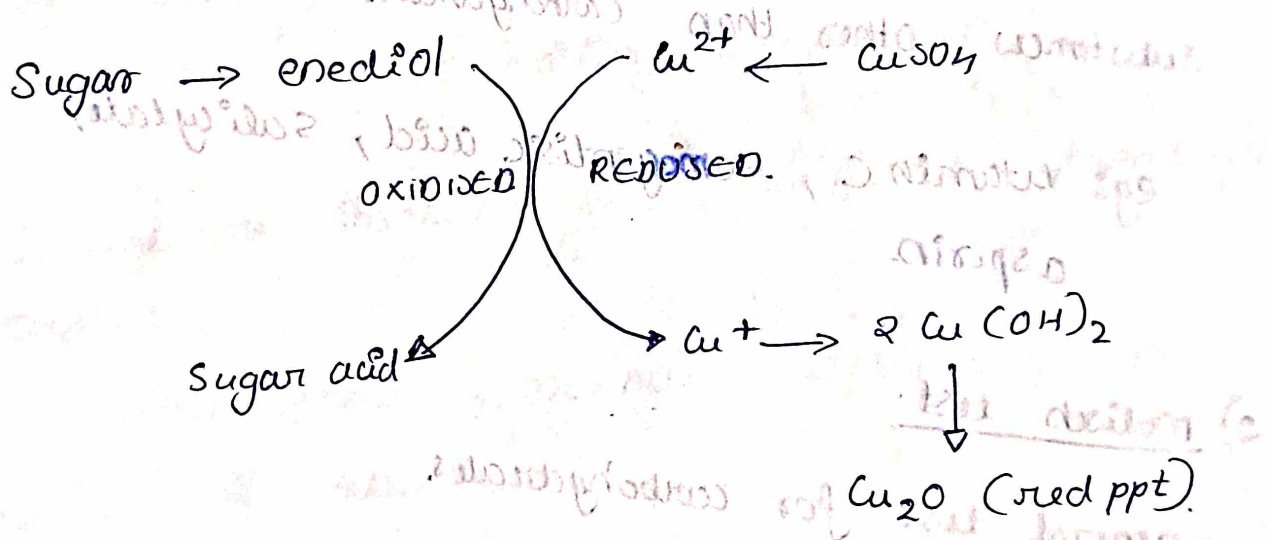 Sugar → enediol Cu²⁺ ← CuSO4
OXIDISED REDUSED.
Sugar acid Cu⁺ → 2 Cu (OH)₂
↓
Cu₂O (red ppt).